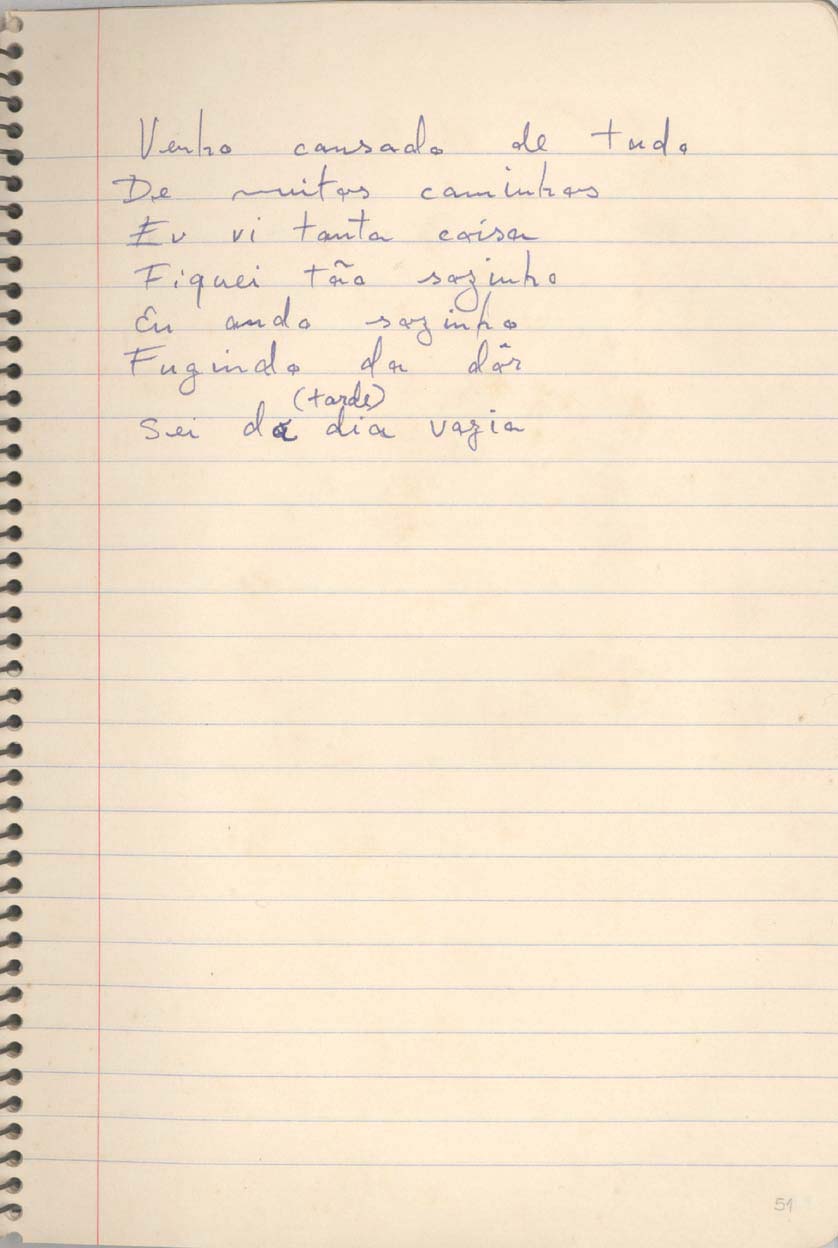 Venho cansado de tudo
De muitos caminhos
Eu vi tanta coisa
Fiquei tão sozinho
Eu ando sozinho
Fugindo da dôr
(tarde)
Sei da dia vazia
51